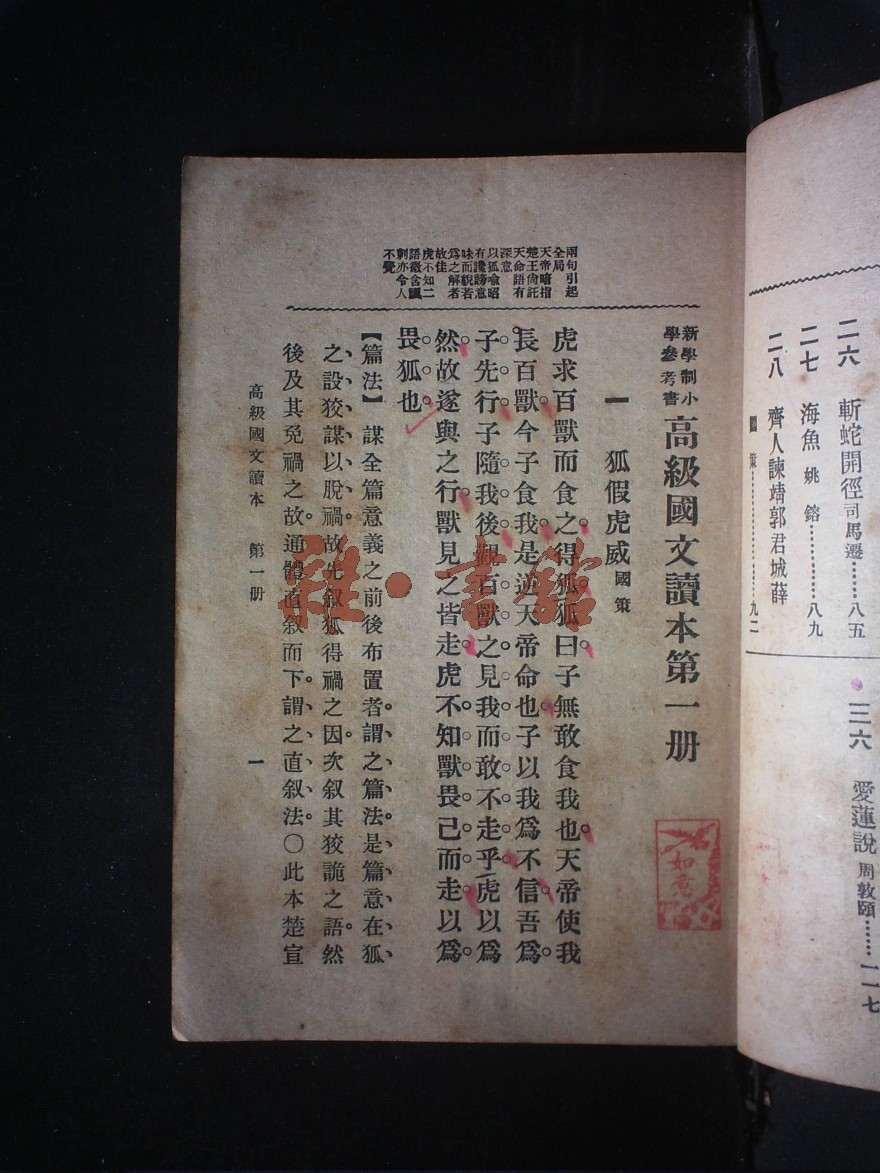 二六 斬蛇開徑 司馬遷……八五
二七 海魚 姚鎔…………八九
二八 齊人諫靖郭君城薛
國策…………九二
三六 愛蓮說 周敦頤……一一七
新學制小
學參考書
高級國文讀本第一册
一 狐假虎威 國策
兩句引起
全局
天帝暗指
楚王尙託
天命語有
深意
以狐喻昭
有譏謗意
味而貌若
爲之解者
故佳
虎不知二
語微含諷
刺亦令人
不覺
虎求百獸而食之。得狐。狐曰子無敢食我也。天帝使我
長百獸。今子食我。是逆天帝命也。子以我爲不信。吾爲
子先行。子隨我後。觀百獸之見我而敢不走乎。虎以爲
然。故遂與之行。獸見之皆走。虎不知獸畏己而走。以爲
畏狐也。
【篇法】 謀全篇意義之前後布置者。謂之篇法。是篇意在狐
之設狡謀以脫禍。故先叙狐得禍之因。次叙其狡詭之語。然
後及其免禍之故。通體直叙而下。謂之直叙法。〇此本楚宣
高級國文讀本 第一册
一
如意
雅·書館